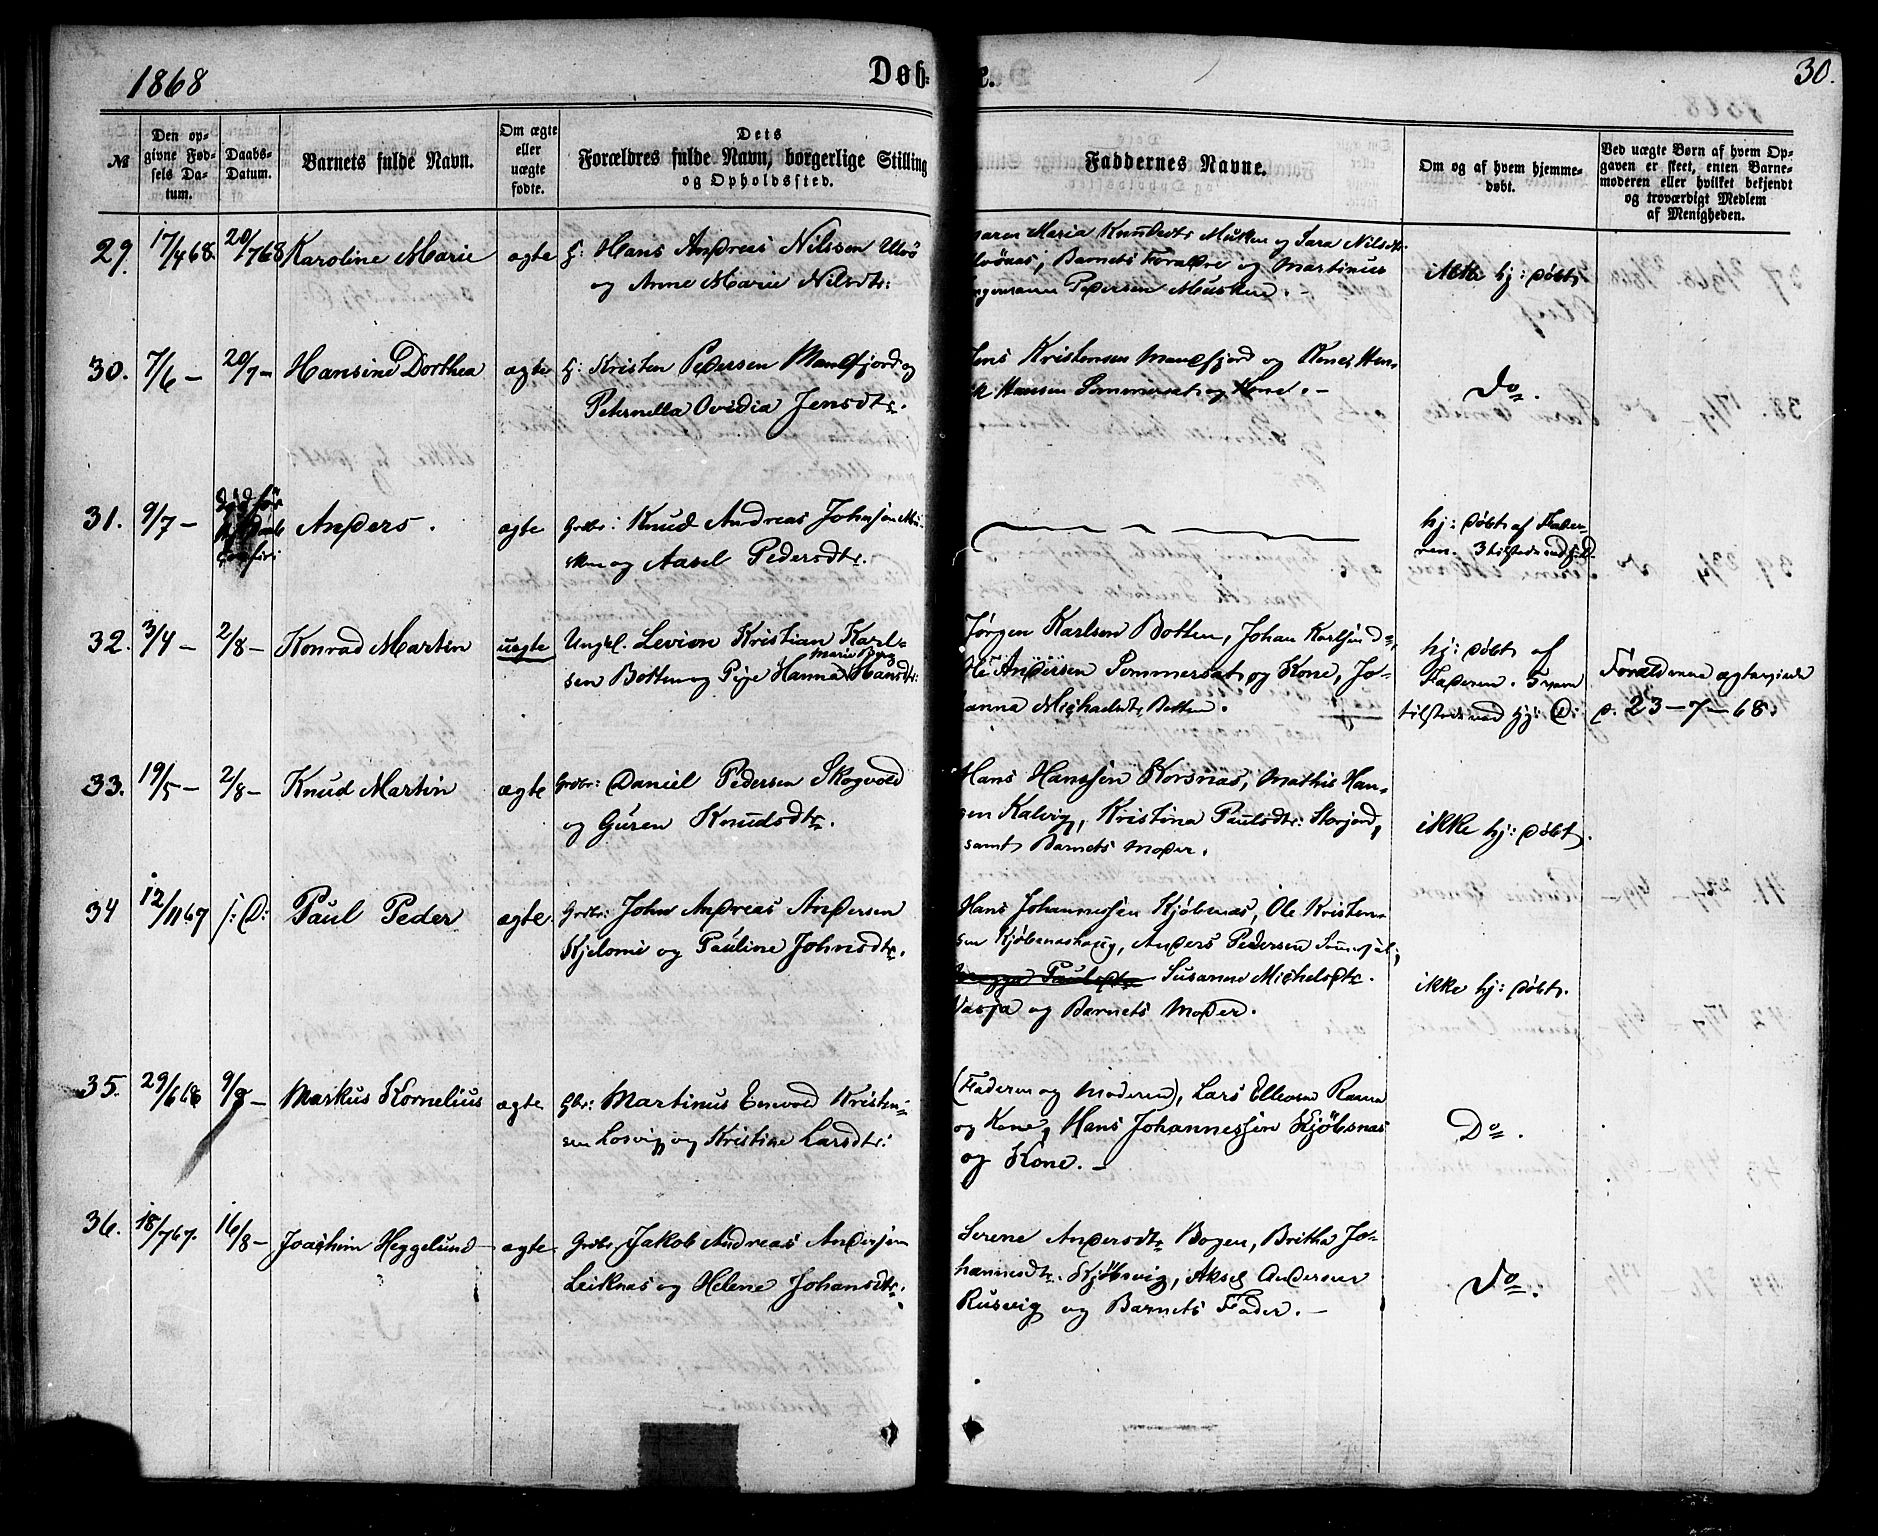 1868
Døb-
e.
30.
№
Den op-
givne Fød-
sels Da-
tum.
Daabs-
Datum.
Barnets fulde Navn.
Om ægte
eller
uægte
fødte.
Dets
Forældres fulde Navn, borgerlige Stilling
og Opholdssted.
Faddernes Navne.
Om og af hvem hjemme-
døbt.
Ved uægte Børn af hvem Op-
gaven er skeet, enten Barne-
moderen eller hvilket bekjendt
og troværdigt Medlem
af Menigheden.
29. 17/4 68. 20/7 68 Karoline Marie ægte Hans Andreas Nilssen Ulvö
og Anne Marie Nilsdtr:
Maria Knudsdtr Musken og Sara Nilsdtr.
Barnets Forældre og Martinus
Pedersen Musken.
ikke hj: døbt
30. 7/6 — 20/7 — Hansine Dorthea ægte Kristen Pedersen Mandfjord og
Peternella Ovidia Jensdtr.
Jens Kristensen Mandfjord og Kone, Hen-
Hansen Sommersæt og Kone. —
Do.
31. 9/7 — død før
Anders. ægte Grdbr: Knud Andreas Johnsen Mu-
sken og Aasel Pedersdtr.
hj: døbt af Fade-
ren. 3 tilstede ved hj: D.
32. 3/4 — 2/8 — Konrad Martin uægte Ungkl. Levion Kristian Karl-
sen Botten og Pige Hanna Marie Hansdtr:
Jørgen Karlsen Botten, Johan Karlsen do,
Ole Andersen Sommersæt og Kone, Jo-
hanna Michaelsdtr Botten.
hj: døbt af
Faderen.
tilstede ved hj: D:
Forældrene ægteviede
d. 23 — 7 — 68.
33. 19/5 — 2/8 — Knud Martin ægte Grdbr: Daniel Pedersen Skogvold
og Guren Knudsdtr.
Hans Hanssen Korsnæs, Mathis Han-
sen Kalvig, Kristina Paulsdtr: Storjord,
samt Barnets Moder.
ikke hj: døbt.
34 12/11 67 s: D: Paul Peder ægte. Grdbr: John Andreas Andersen
Kjelomi og Pauline Johnsdtr.
Hans Johannessen Kjøbsnæs, Ole Kristen-
sen Kjøbsnæshaug, Anders Pedersen
Paulsdtr Susanne Michelsdtr.
Vasja og Barnets Moder.
ikke hj: døbt.
35. 29/6 68 9/8 — Markus Kornelius ægte Gbr: Martinus Enevold Kristen-
sen Losvig og Kristine Larsdtr:
(Faderen og Moderen), Lars Ellevsen Ranna
og Kone, Hans Johannessen Kjøbsnæs
og Kone. —
Do.
36. 18/7 67. 16/8 — Joachim Heggelund ægte. Grdbr Jakob Andreas Andersen
Leiknæs og Helene Johansdtr.
Serene Andersdtr Bogen, Britha Jo-
hannesdtr. Kjøbsvig, Aksel Andersen
Rusvig og Barnets Fader. —
Do.